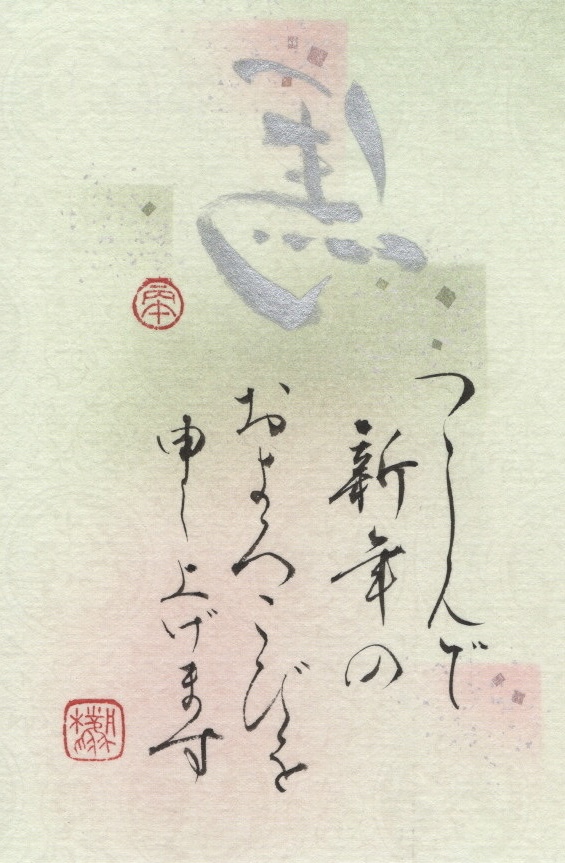 馬
つゝしんで
新年の
およろこびを
申し上げます